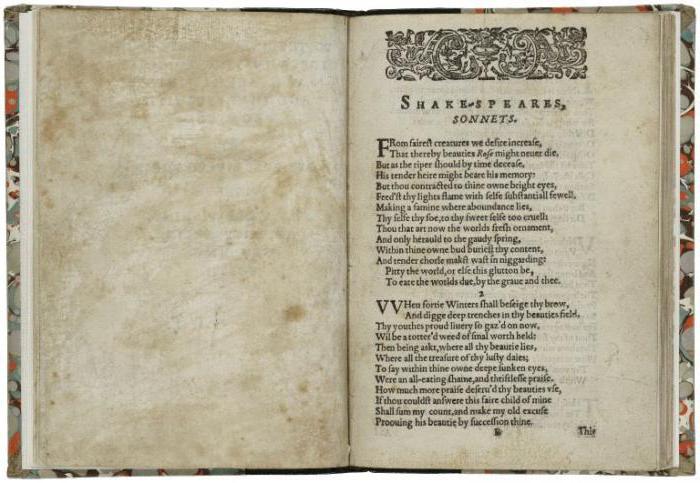 SHAKE-SPEARES,
SONNETS.
FRom faireſt creatures we deſire increaſe,
That thereby beauties Roſe might neuer die,
But as the riper ſhould by time deceaſe,
His tender heire might beare his memory:
But thou contracted to thine owne bright eyes,
Feed'ſt thy lights flame with ſelfe ſubſtantiall fewell,
Making a famine where aboundance lies,
Thy ſelfe thy foe,to thy ſweet ſelfe too cruell:
Thou that art now the worlds freſh ornament,
And only herauld to the gaudy ſpring,
Within thine owne bud burieſt thy content,
And tender chorle makſt waſt in niggarding:
Pitty the world,or elſe this glutton be,
To eate the worlds due,by the graue and thee.
2
VVHen fortie Winters ſhall beſeige thy brow,
And digge deep trenches in thy beauties field,
Thy youthes proud liuery ſo gaz'd on now,
Wil be a totter'd weed of ſmal worth held:
Then being askt,where all thy beautie lies,
Where all the treaſure of thy luſty daies;
To ſay within thine owne deepe ſunken eyes,
Were an all-eating ſhame,and thriftleſſe praiſe.
How much more praiſe deſeru'd thy beauties vſe,
If thou couldſt anſwere this faire child of mine
Shall ſum my count,and make my old excuſe
Proouing his beautie by ſucceſſion thine.
B This